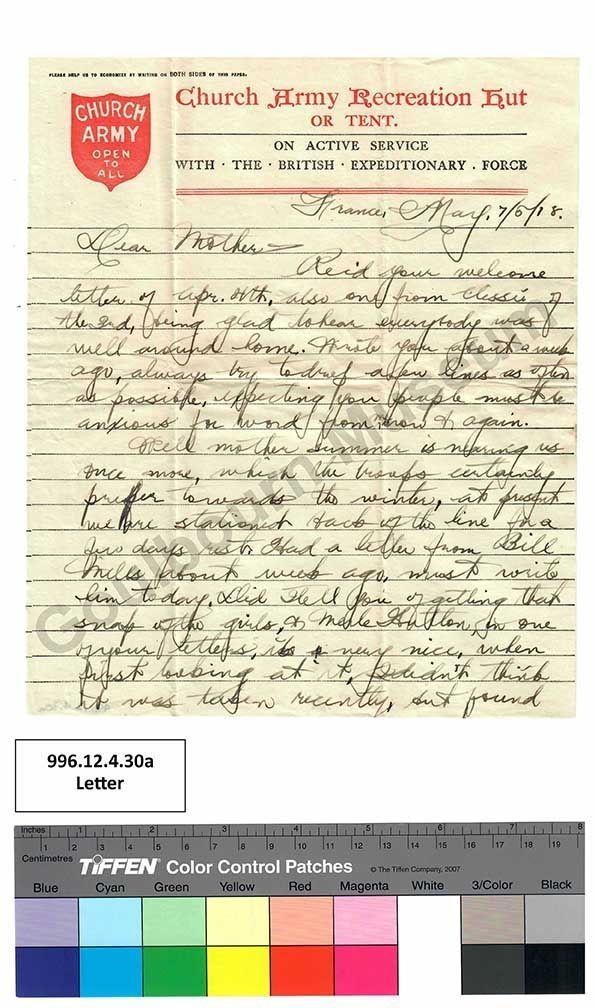 PLEASE HELP US TO ECONOMIZE BY WRITING ON BOTH SIDES OF THIS PAPER.
CHURCH
ARMY
OPEN
TO
ALL
Church Army Recreation Hut
OR TENT.
ON ACTIVE SERVICE
WITH · THE · BRITISH · EXPEDITIONARY · FORCE
France, May, 7/5/18.
Dear Mother –
Rec'd your welcome
letter of Apr. also one from of
the 2nd, being glad to hear everybody was
well around home. Wrote you about a week
ago, always try to drop a few lines as often
as possible, expecting you people must be
anxious for word from now & again.
Well mother summer is nearing us
once more, which the troops certainly
prefer towards the winter, at present
we are stationed back of the line for a
few days rest. Had a letter from Bill
Mills about week ago, must write
him today. Did I tell you of getting that
snap of the girls, & Merle Hutton, in one
of your letters, its a very nice, when
first looking at it, I didn't think
it was taken recently, but found
Goulbourn Museum
996.12.4.30a
Letter
Inches 1 2 3 4 5 6 7 8
Centimetres 1 2 3 4 5 6 7 8 9 10 11 12 13 14 15 16 17 18 19
TIFFEN Color Control Patches © The Tiffen Company, 2007
Blue Cyan Green Yellow Red Magenta White 3/Color Black